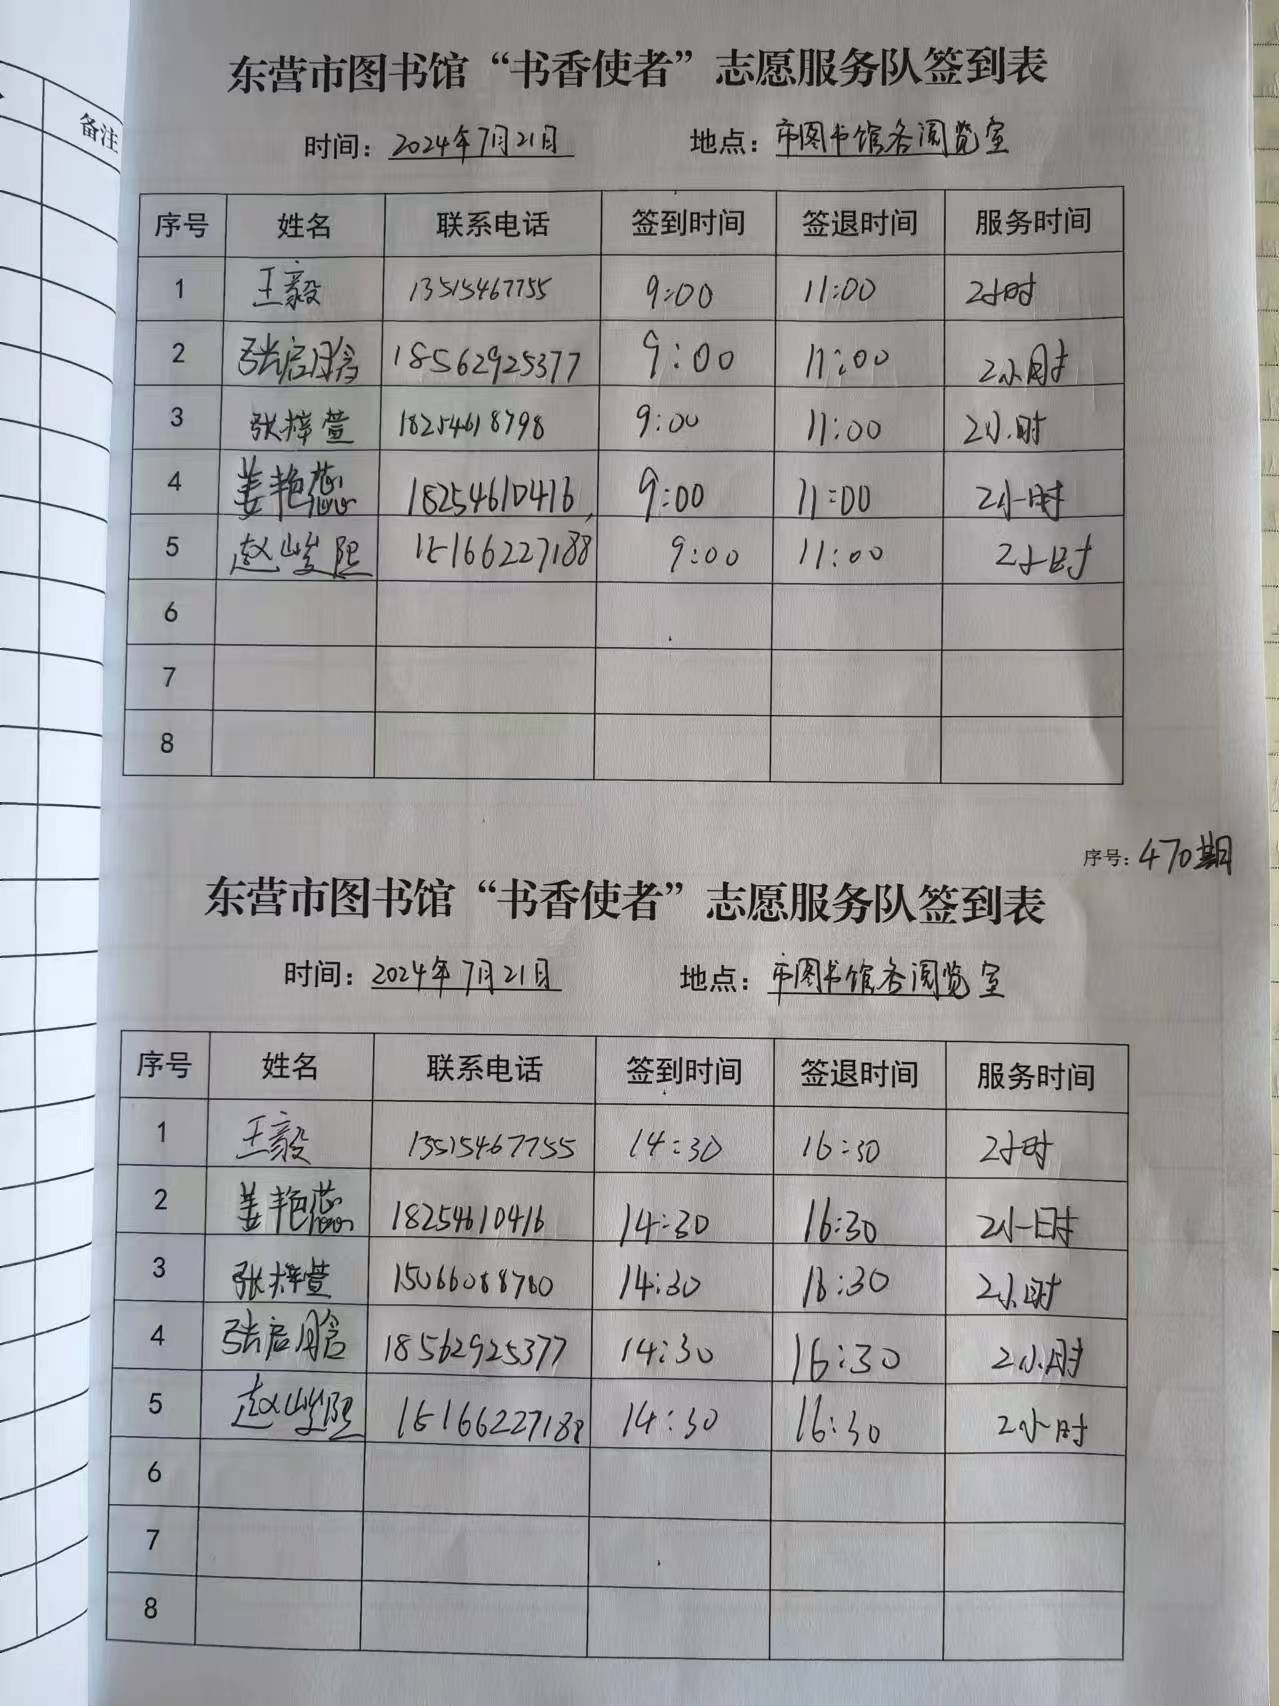 备注
东营市图书馆“书香使者”志愿服务队签到表
时间：2024年7月21日 地点：市图书馆各阅览室
序号 姓名 联系电话 签到时间 签退时间 服务时间
1 王毅 13515467755 9:00 11:00 2小时
2 张启晗 18562925377 9:00 11:00 2小时
3 张梓萱 18254618798 9:00 11:00 2小时
4 姜艳蕊 18254610416 9:00 11:00 2小时
5 赵峻熙 15166227188 9:00 11:00 2小时
6
7
8
序号：470期
东营市图书馆“书香使者”志愿服务队签到表
时间：2024年7月21日 地点：市图书馆各阅览室
序号 姓名 联系电话 签到时间 签退时间 服务时间
1 王毅 13515467755 14:30 16:30 2小时
2 姜艳蕊 18254610416 14:30 16:30 2小时
3 张梓萱 15066088760 14:30 16:30 2小时
4 张启晗 18562925377 14:30 16:30 2小时
5 赵峻熙 15166227188 14:30 16:30 2小时
6
7
8